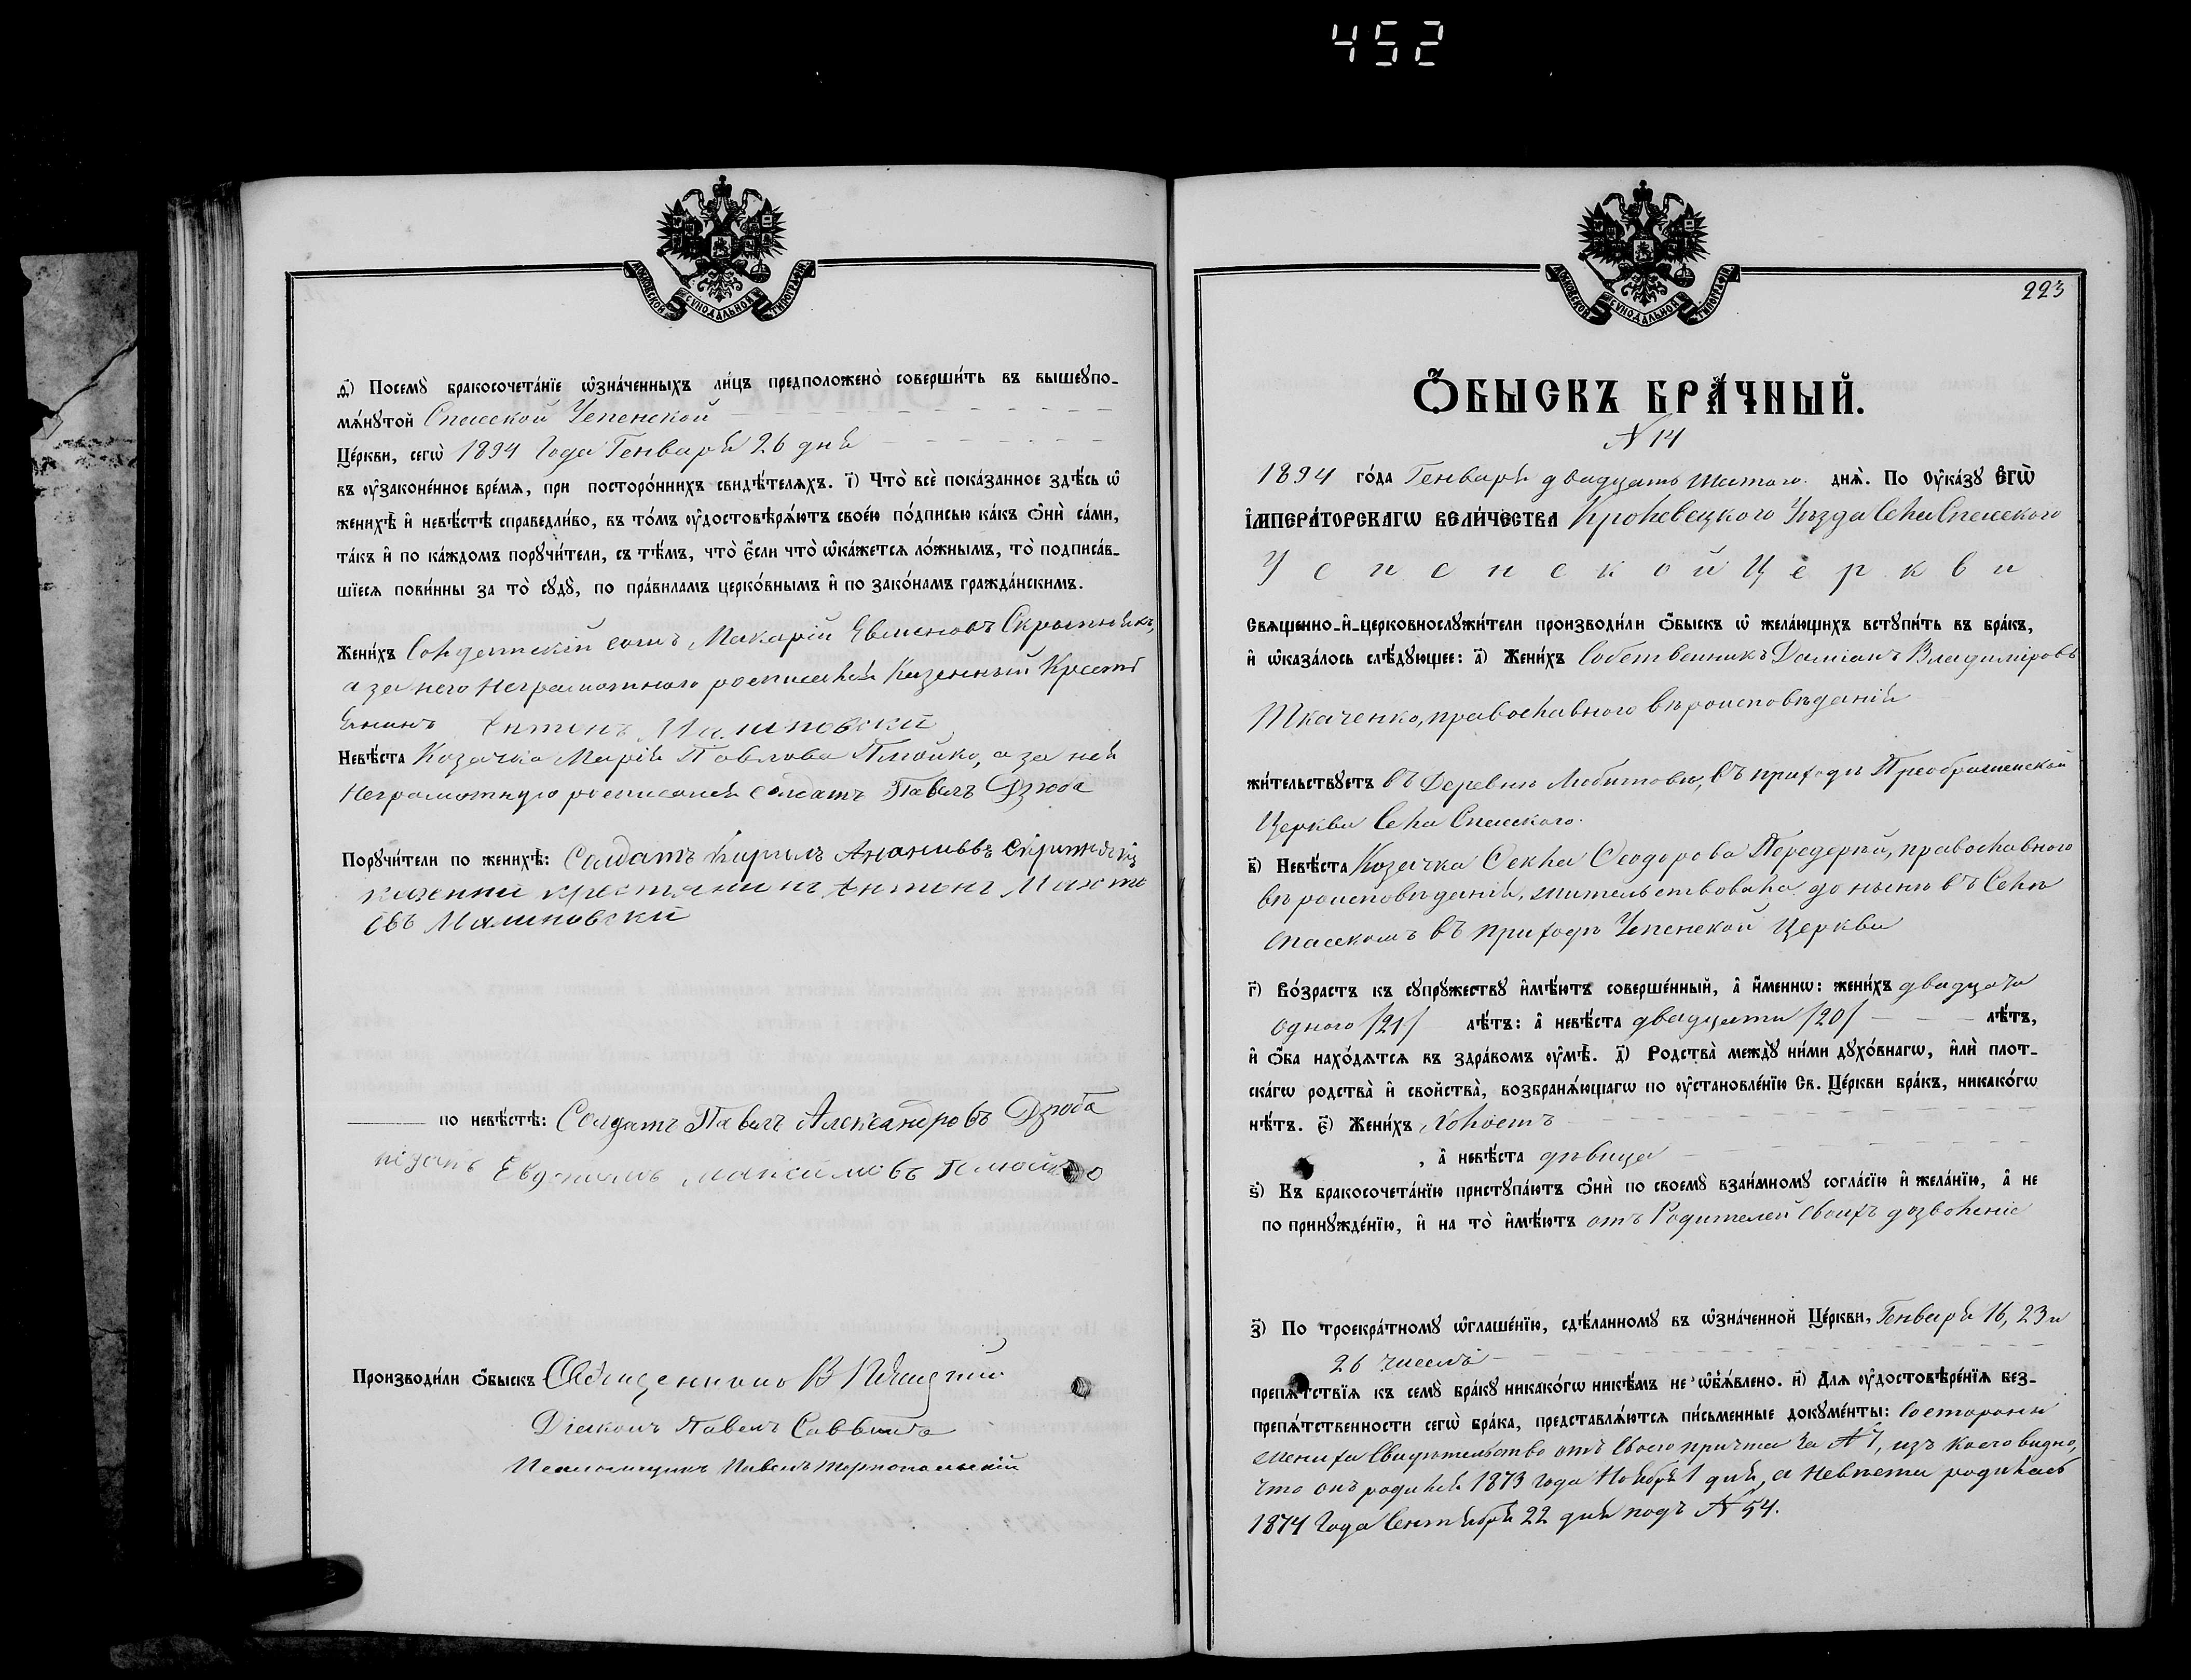 452
МОСКОВСКОЙ СѴНОДАЛЬНОЙ ТИПОГРАФІИ
д҃) Посемꙋ̀ бракосочета́нїе ѡ҆зна́ченныхъ ли́цъ предположено̀ соверши́ть въ вышеꙋпо-
мѧ́нꙋтой Спасской Успенской
Це́ркви, сегѡ̀ 1894 года Генваря 26 дня
въ ᲂу҆законе́нное вре́мѧ, при посторо́ннихъ свидѣ́телѧхъ. і҃) Что̀ всѐ пока́занное здѣ́сь ѡ҆
женихѣ̀ и҆ невѣ́стѣ справедли́во, въ то́мъ ᲂу҆достовѣрѧ́ютъ свое́ю по́дписью ка́къ ѻ҆нѝ са́ми,
та́къ и҆ по ка́ждомъ порꙋчи́тели, съ тѣ́мъ, что̀ є҆́сли что̀ ѡ҆ка́жетсѧ ло́жнымъ, то̀ подписа́в-
шїесѧ пови́нны за то̀ сꙋдꙋ̀, по пра́виламъ церко́внымъ и҆ по зако́намъ гражда́нскимъ.
Жени́хъ Солдатскій сынъ Макарій Евменовъ
а за него неграмотного росписался Казенный Крестья
янинъ Антонъ Малиновский
Невѣ́ста Козачка Марія Павлова Плюйко, а за ней
Неграмотную росписался солдатъ Павелъ Дзюба
Порꙋчи́тели по женихѣ̀: Солдатъ Кирилъ Ананиевъ
казенни крестянинъ Антонъ
овъ Малиновски
по невѣ́стѣ: Солдатъ Павелъ Александровъ Дзюба
Евдокимъ Максимовъ
Производи́ли ѻ҆́быскъ Священникъ В
Діаконъ Павелъ Саввинъ
Псаломщикъ Павелъ Тарнопольскій
МОСКОВСКОЙ СѴНОДАЛЬНОЙ ТИПОГРАФІИ
223
Ѻ҆́БЫСКЪ БРА́ЧНЫЙ.
N 14
1894 го́да Генваря двадцать шестого днѧ̀. По Оу҆ка́зꙋ Є҆ГѠ̀
І҆МПЕРА́ТОРСКАГѠ ВЕЛИ́ЧЕСТВА Кролевецкого Уѣзда Села Спасского
Успенской Церкви
Свѧщенно-и҆-церковнослꙋжи́тели производи́ли ѻ҆́быскъ ѡ҆ жела́ющихъ встꙋпи́ть въ бра́къ,
и҆ ѡ҆каза́лось слѣ́дꙋющее: а҃) Жени́хъ Собственникъ Даміанъ Владиміровъ
Ткаченко, православного вѣроисповѣданія
жи́тельствꙋетъ въ Деревнѣ Любитовѣ, въ приходѣ Преображенской
Церкви Села Спасского.
в҃) Невѣ́ста Козачка Фекла Феодорова Передерѣй, православного
вѣроисповѣданія, жительствовала до нынѣ въ Селѣ
Спасскомъ въ приходѣ Успенской Церкви
г҃) Во́зрастъ къ сꙋпрꙋ́жествꙋ и҆мѣ́ютъ соверше́нный, а҆ и҆́меннѡ: жени́хъ двадцати
одного /21/ лѣ́тъ: а҆ невѣ́ста двадцати /20/ лѣ́тъ,
и҆ ѻ҆́ба нахо́дѧтсѧ въ здра́вомъ ᲂу҆мѣ̀. д҃) Родства̀ междꙋ̀ ни́ми дꙋхо́внагѡ, и҆лѝ плот-
ска́гѡ родства̀ и҆ сво́йства, возбранѧ́ющагѡ по ᲂу҆становле́нїю Св. Це́ркви бра́къ, никако́гѡ
нѣ́тъ. є҃) Жени́хъ Холостъ
, а҆ невѣ́ста дѣвица
ѕ҃) Къ бракосочета́нїю пристꙋпа́ютъ ѻ҆нѝ по своемꙋ̀ взаи́мномꙋ согла́сїю и҆ жела́нїю, а҆ не
по принꙋжде́нїю, и҆ на то̀ и҆мѣ́ютъ отъ Родителей своихъ дозволеніе
з҃) По троекра́тномꙋ ѡ҆глаше́нїю, сдѣ́ланномꙋ въ ѡ҆зна́ченной Це́ркви, Генваря 16, 23 и
26 числъ
препѧ́тствїѧ къ семꙋ̀ бра́кꙋ никако́гѡ никѣ́мъ не ѡ҆б̾ѧ́влено. и҃) Длѧ ᲂу҆достовѣре́нїѧ без-
препѧ́тственности сегѡ̀ бра́ка, представлѧ́ютсѧ пи́сьменные докꙋме́нты: Со стороны
жениха Свидѣтельство отъ своего причта за N 7, изъ коего видно,
что онъ родился 1873 года Ноября 1 дня, а невѣста родилась
1874 года Сентября 22 дня подъ N 54.